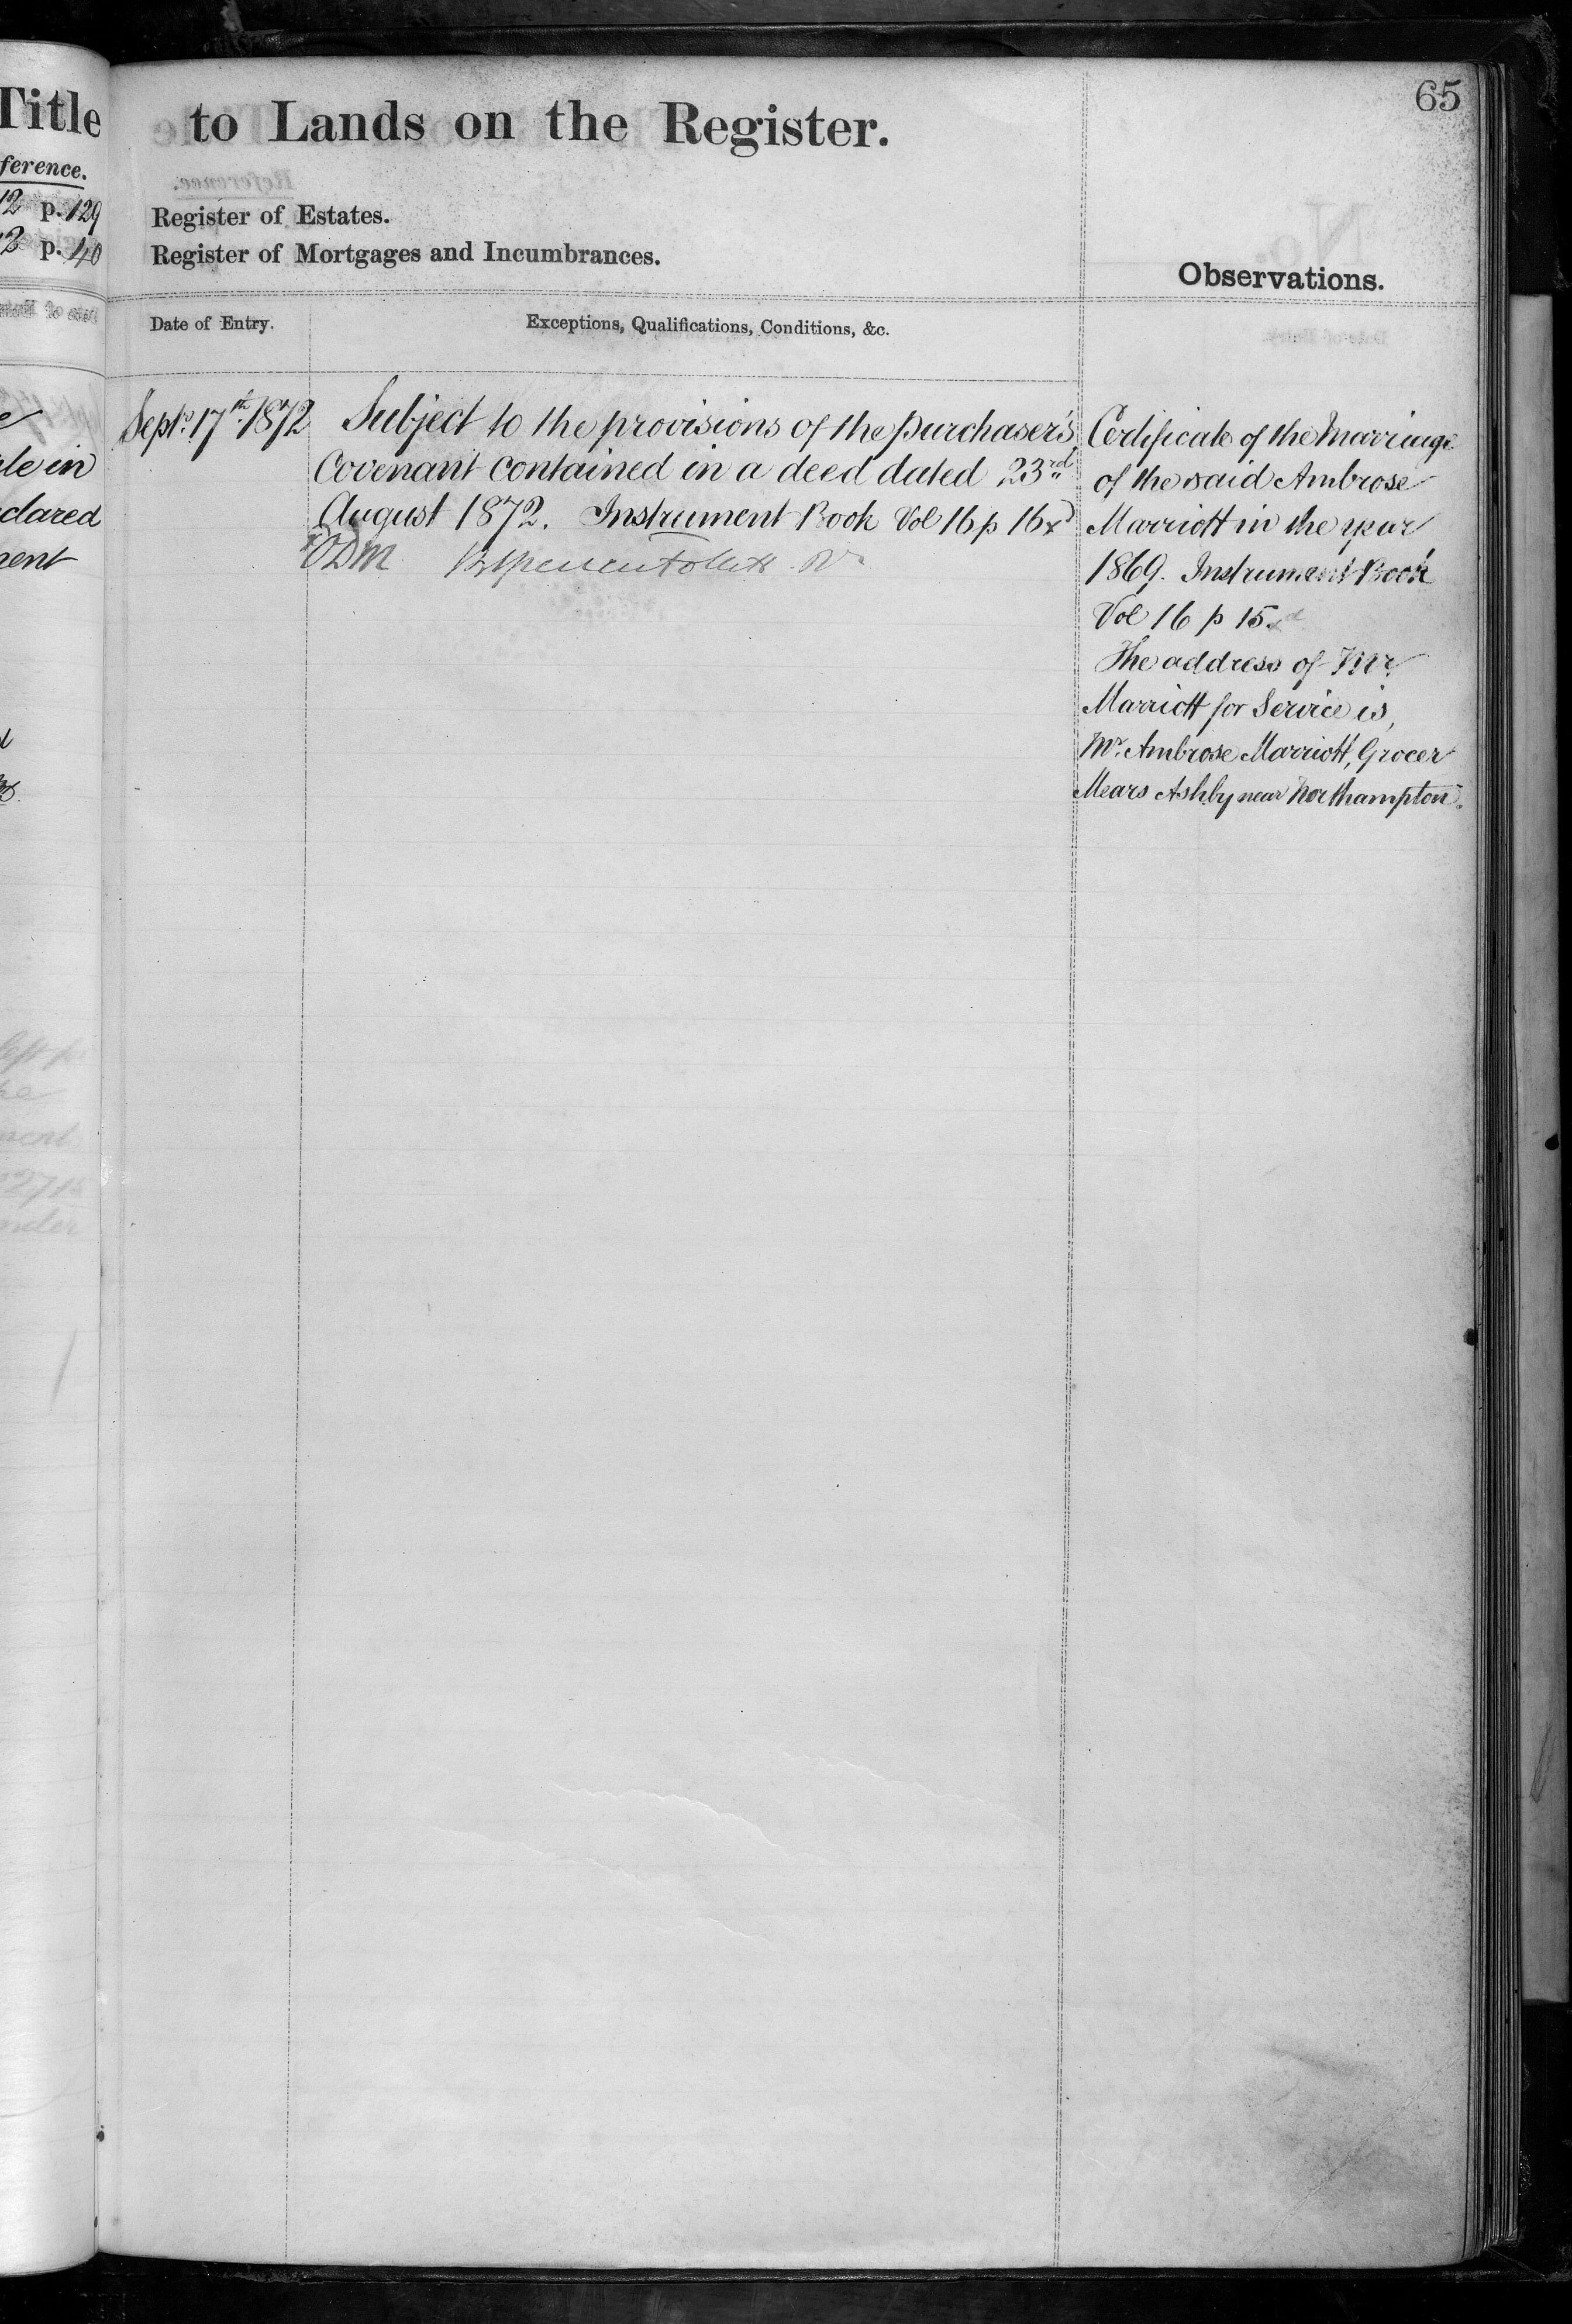 65
Title
ference.
12 p. 129
12 p. 40
to Lands on the Register.
Register of Estates.
Register of Mortgages and Incumbrances.
Observations.
Date of Entry.
Exceptions, Qualifications, Conditions, &c.
Septr. 17th. 1872
Subject to the provisions of the purchaser's
Covenant contained in a deed dated 23rd
August 1872. Instrument Book Vol 16 p 16
ODM
Certificate of the Marriage
of the said Ambrose
Marriott in the year
1869. Instrument Book
Vol 16 p 15
The address of Mr.
Marriott for Service is,
Mr. Ambrose Marriott, Grocer
Mears Ashby near Northampton.
e
le in
clared
ment